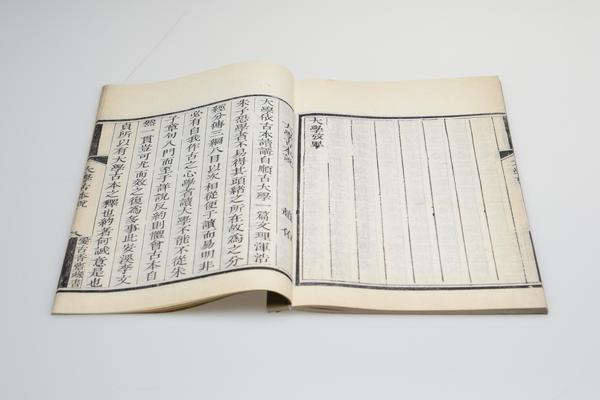 大學攷畢
大學依古本讀講自顧古大學一篇文理渾浩
朱子恐學者不易得其頭緒之所在故為之分
經分傳三綱八目以次相從便于讀而易明非
必有自我作古之心學者讀大學不能不從朱
子章句入門而至于詳說反約則體會古本自
然一貫豈可尤而效之復為多事此安溪李文
貞所以有大學古本之釋也約者何誠意是也
大學古本說
八